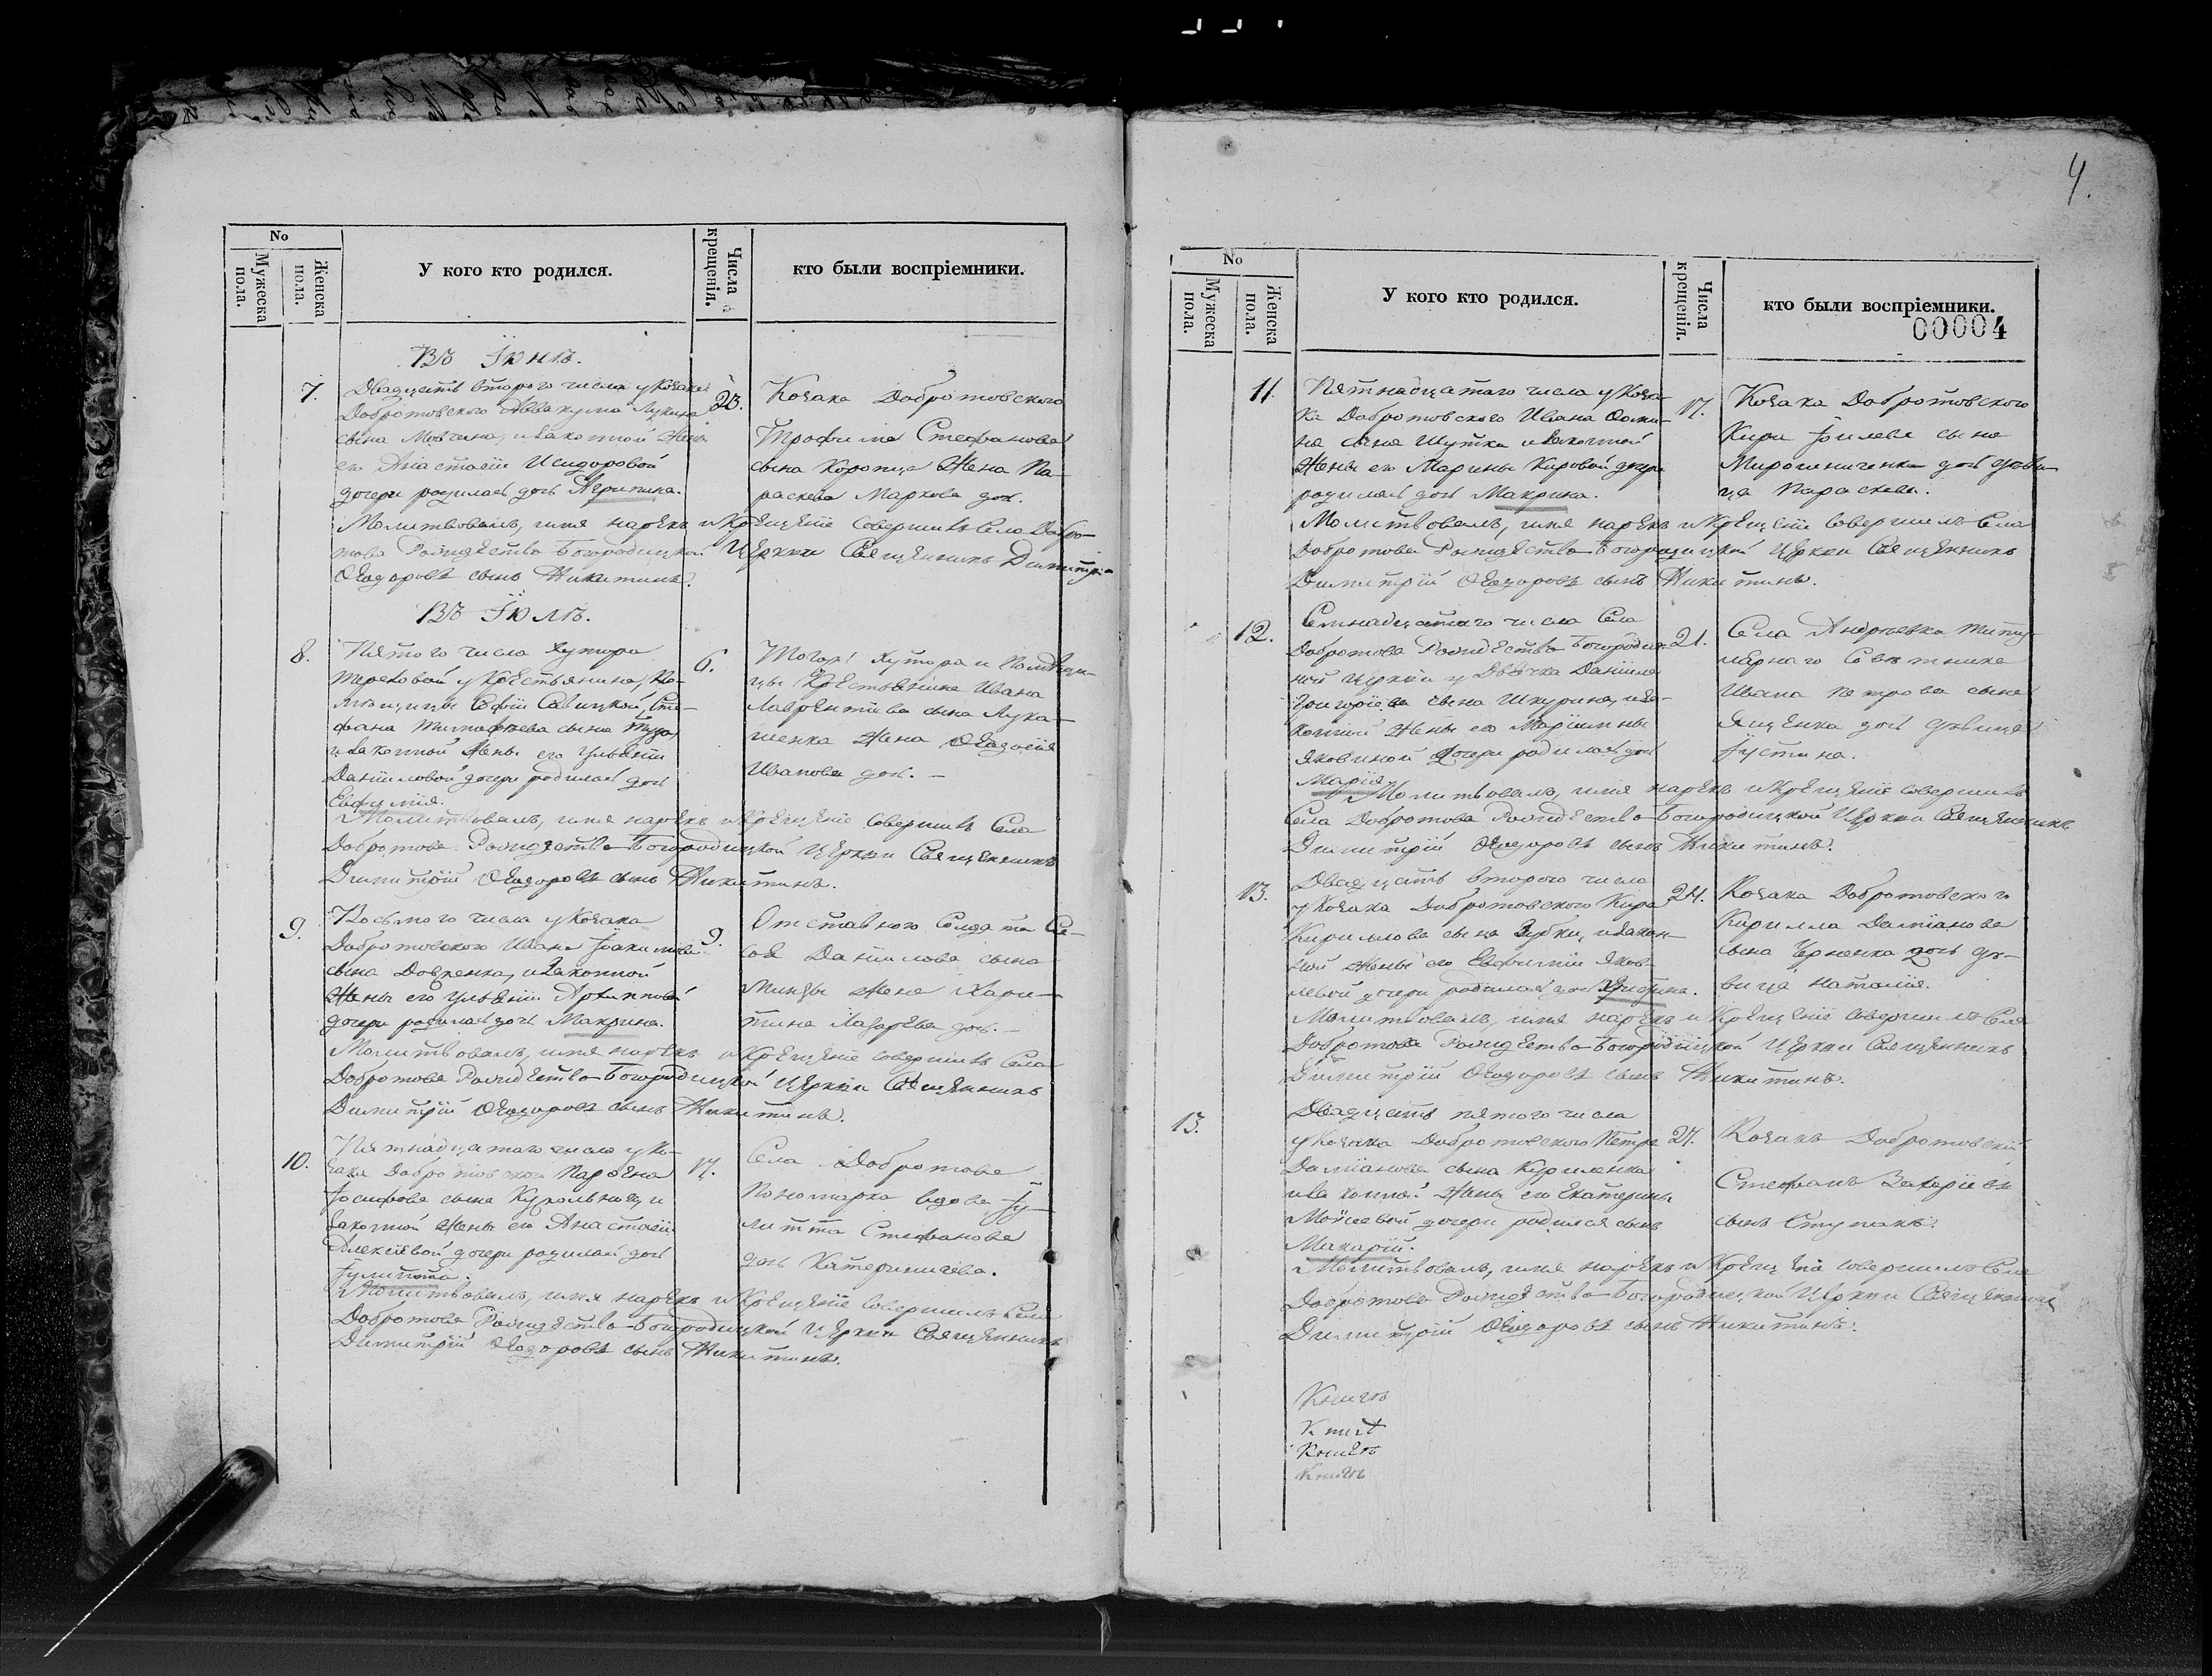 No
Мужеска пола.
Женска пола.
У кого кто родился.
Числа крещенія.
кто были воспріемники.
Въ Іюнѣ.
7.
Двадцать втораго числа у Козака
Добротовского Аввакума Лукина
сына Мовчана, и законной жены
его Анастасіи Исидоровой
дочери родилась дочь Агрипина.
23.
Козака Добротовского
Трофима Стефанова
сына Коропца жена Па-
раскева Маркова доч.
Молитвовалъ, имя нарекъ и Крещеніе совершилъ Села Добро-
това Рождество-Богородицкой Церкви Священникъ Димитрій
Ѳеодоровъ сынъ Никитинъ.
Въ Іюлѣ.
8.
Пятого числа Хутора
Тереховой у Крестьянина, По-
мѣщицы Софіи Савицкой, Сте-
фана Тимофѣева сына
и законной жены его Ульяніи
Даниловой дочери родилась дочь
Евфимія.
6.
Тогожъ Хутора и Помѣщи-
цы Крестьянина Ивана
Лаврентіева сына Лука-
шенка жена Ѳеодосія
Иванова доч. -
Молитвовалъ, имя нарекъ и Крещеніе совершилъ Села
Добротова Рождество-Богородицкой Церкви Священникъ
Димитрій Ѳеодоровъ сынъ Никитинъ.
9.
Восьмого числа у Козака
Добротовского Ивана Іоакимова
сына Довженка, и законной
жены его Ульяніи Архиповой
дочери родилась дочь Макрина.
9.
Отставного Солдата Се-
Даніилова сына
Минзы жена Хари-
тина Лазарева доч. -
Молитвовалъ, имя нарекъ и Крещеніе совершилъ Села
Добротова Рождество-Богородицкой Церкви Священникъ
Димитрій Ѳеодоровъ сынъ Никитинъ.
10.
Пятнадцатого числа у Ко-
зака Добротовской Парѳена
Іосифова сына и
законной жены его Анастасіи
Алексіевой дочери родилась дочь
Іулитта.
17.
Села Добротова
Пономарка вдова Іу-
литта Стефанова
дочь Катериничева.
Молитвовалъ, имя нарекъ и Крещеніе совершилъ Села
Добротова Рождество-Богородицкой Церкви Священникъ
Димитрій Ѳеодоровъ сынъ Никитинъ.
4.
No
Мужеска пола.
Женска пола.
У кого кто родился.
Числа крещенія.
кто были воспріемники.
00004
11.
Пятнадцатого числа у Коза-
ка Добротовского Ивана Ѳоми-
на сына Шутка и законной
жены его Марины Кировой дочери
родилась дочь Макрина.
17.
Козака Добротовского
Кира Іовлева сына
Мирошниченка дочь дѣви-
ца Параскева.
Молитвовалъ, имя нарекъ и Крещеніе совершилъ Села
Добротова Рождество-Богородицкой Церкви Священникъ
Димитрій Ѳеодоровъ сынъ Никитинъ.
12.
Семнадцатого числа Села
Добротова Рождество-Богородиц-
кой Церкви у Дьячка Даніила
Григоріева сына Шкурина, и за-
конной жены его Маріянны
Яковиной дочери родилась дочь
Марія.
21.
Села Андреевка Титу-
лярного Совѣтника
Ивана Петрова сына
Яценка дочь дѣвица
Іустина.
Молитвовалъ, имя нарекъ и Крещеніе совершилъ
Села Добротова Рождество-Богородицкой Церкви Священникъ
Димитрій Ѳеодоровъ сынъ Никитинъ.
13.
Двадцать второго числа
у Козака Добротовского Кира
Кириллова сына Зубки, и закон-
ной жены его Евфиміи Яков-
левой дочери родилась дочь Христина.
24.
Козака Добротовского
Кирилла Даміанова
сына Черненка дочь дѣ-
вица Наталія.
Молитвовалъ, имя нарекъ и Крещеніе совершилъ Села
Добротова Рождество-Богородицкой Церкви Священникъ
Димитрій Ѳеодоровъ сынъ Никитинъ.
13.
Двадцать пятого числа
у Козака Добротовского Петра
Даміанова сына Куриленка
и законной жены его Екатерины
Моисеевой дочери родился сынъ
Макарій.
27.
Козакъ Добротовскій
Стефанъ Захаріевъ
сынъ Ступакъ.
Молитвовалъ, имя нарекъ и Крещеніе совершилъ Села
Добротова Рождество-Богородицкой Церкви Священникъ
Димитрій Ѳеодоровъ сынъ Никитинъ.